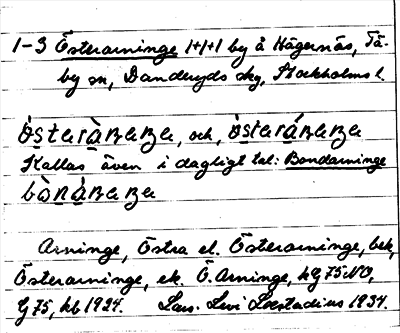 1-3 Österarninge 1+1+1 by å Hägernäs, Tä-
by sn, Danderyds skg, Stockholms l.
och
Kallas även i dagligt tal: Bondarninge
Arninge, Östra el. Österarninge, bek,
Österarninge, ek. Ö. Arninge, hG 75 NO,
G 75, kb 1924. Lars Levi Læstadius 1934.